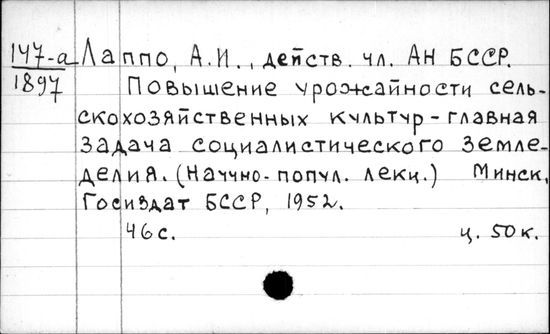 147-а Лаппо, А.И., действ. чл. АН БССР.
1897
Повышение урожайности сель-
скохозяйственных культур - главная
задача социалистического земле-
делия. (Научно-попул. лекц.) Минск,
Госиздат БССР, 1952.
46 с. ц. 50 к.